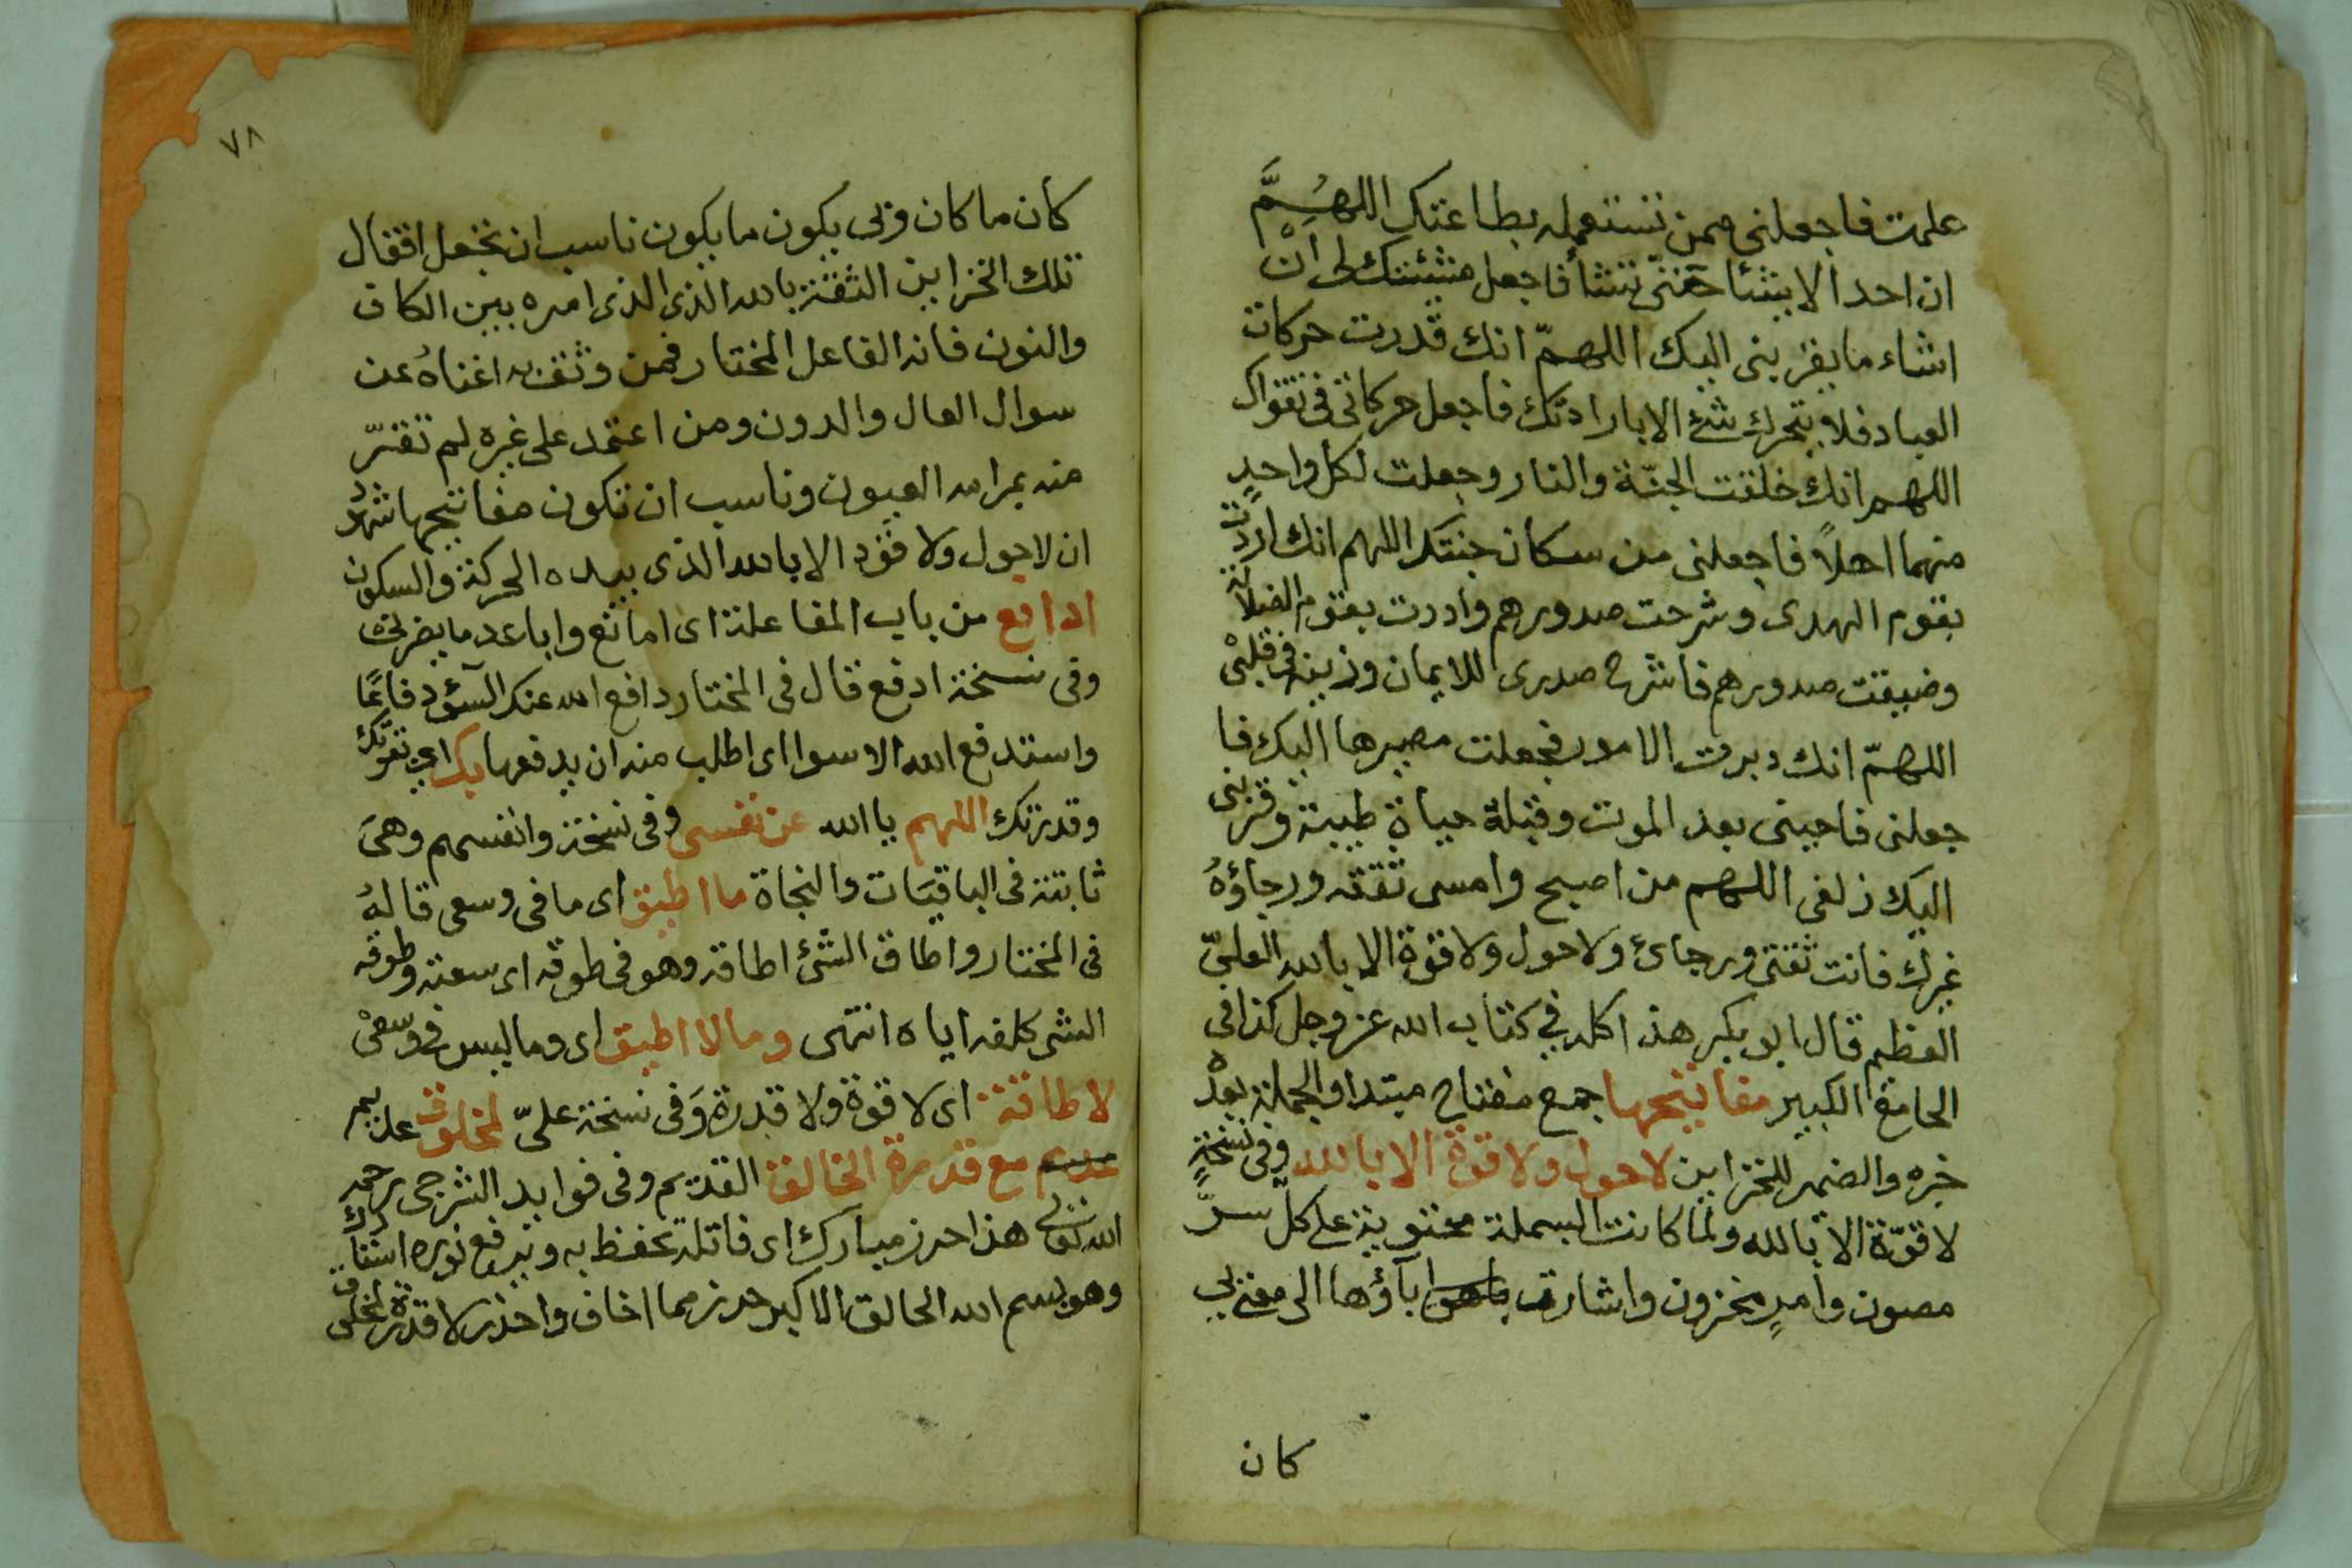 علمت فاجعلنى ممن تستعمله بطاعتك اللهُمَّ
ان احدا لا يشأ حتى تشأ فاجعل مشيئتك لى ان
اشاء ما يقربنى اليك اللهمّ انك قدرت حركات
العباد فلا يتحرك شئ الا بارادتك فاجعل حركاتى فى تقواك
اللهم انك خلقت الجنّة والنار وجعلت لكل واحدٍ
منهما اهلاً فاجعلنى من سكان جنتك اللهم انك اردت
بقوم الهدى وشرحت صدورهم واردت بقوم الضلالة
وضيقت صدورهم فاشرح صدرى للايمان وزينه فى قلبى
اللهمّ انك دبرت الامور فجعلت مصيرها اليك فا
جعلنى فاحينى بعد الموت وقبله حياة طيبة وقربنى
اليك زلفى اللهم من اصبح وامسى ثقته ورجاؤهُ
غيرك فانت ثقتى ورجائ ولا حول ولا قوة الا بالله العلىّ
العظيم قال ابو بكر هذا كله في كتاب الله عز وجل كذا فى
الجامع الكبير مفاتيحها جمع مفتاح مبتدا والجملة بعده
خبره والضمير للخزاين لا حول ولا قوة الا بالله وفى نسخةٍ
لا قوّة الا بالله ولما كانت البسملة محتوية على كلّ سرّ
مصون وامرٍ مخزون واشارت باؤها الى معنى بى
كان
٧٨
كان ما كان وبى يكون ما يكون ناسب ان تجعل اقفال
تلك الخزاين الثقة بالله الذى الذى امره بين الكاف
والنون فانه الفاعل المختار فمن وثق به اغناهُ عن
سوال العال والدون ومن اعتمد على غيره لم تقترّ
منه بمرامه العيون وناسب ان تكون مفاتيحها شهد
ان لا حول ولا قوة الا بالله الذى بيده الحركة والسكون
ادافع من باب المفاعلة اى امانع واباعد ما يضرنى
وفى نسخة ادفع قال فى المختار دافع الله عنك السؤ دفاعًا
واستدفع الله الاسوا اى اطلب منه ان يدفعها بك اى بقوتك
وقدرتك اللهم يا الله عن نفسى وفى نسخة وانفسهم وهى
ثابتة فى الباقيات والنجاة ما اطيق اى ما فى وسعى قالهُ
فى المختار واطاق الشئ اطاقه وهو فى طوقه اى سعته وطوقه
الشى كلفه اياه انتهى وما لا اطيق اى وما ليس فى وسعى
لا طاقة اى لا قوة ولا قدرة وفى نسخة علىّ لمخلوق عديم
عديم مع قدرة الخالق القديم وفى فوايد الشرجى رحمه
الله تعالى هذا حرز مبارك اى فاتله تحفظ به وترفع نوره استار
وهو بسم الله الخالق الاكبر حرز مما اخاف واحذر لا قدرة لمخلوق